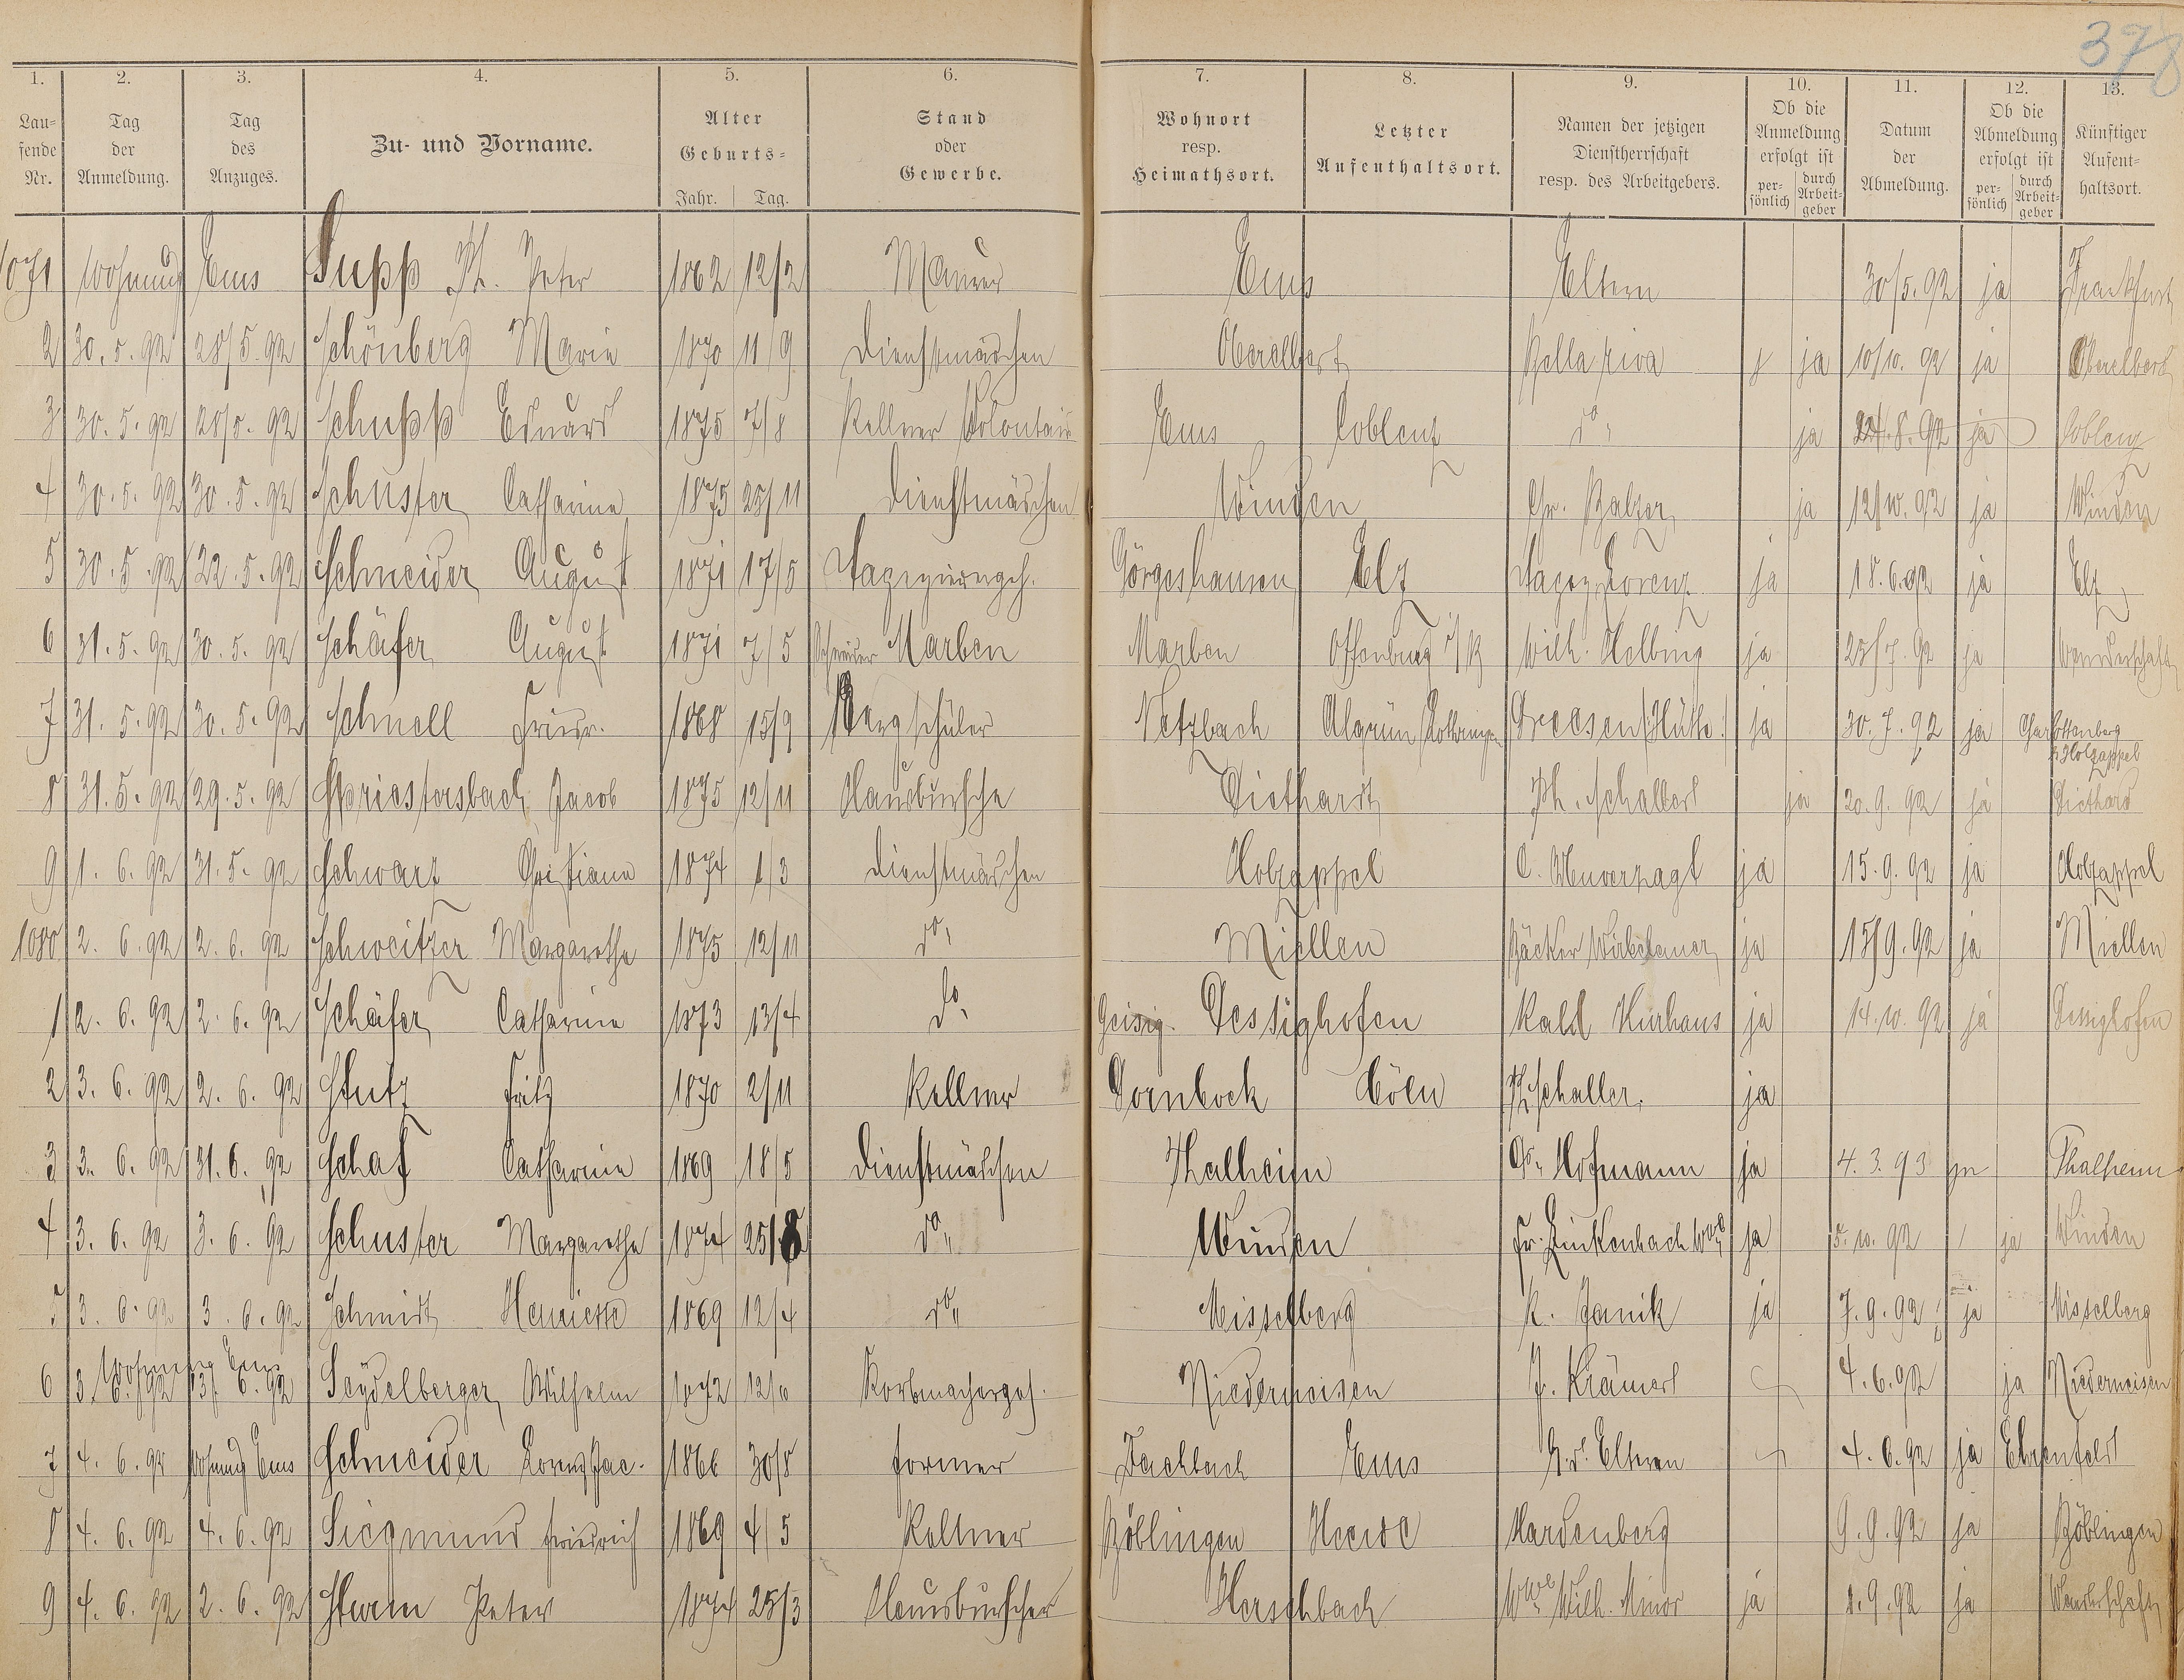 378
1. 2. 3. 4. 5. 6. 7. 8. 9. 10. 11. 12. 13.
Laufende Nr. Tag der Anmeldung. Tag des Anzuges. Zu- und Vorname. Alter Geburts- Jahr. Tag. Stand oder Gewerbe. Wohnort resp. Heimathsort. Letzter Aufenthaltsort. Namen der jetzigen Dienstherrschaft resp. des Arbeitgebers. Ob die Anmeldung erfolgt ist persönlich durch Arbeitgeber Datum der Abmeldung. Ob die Abmeldung erfolgt ist persönlich durch Arbeitgeber Künftiger Aufenthaltsort.
1071 Wohnung Ems Supp Ph. Peter 1862 12/2 Maurer Ems Eltern 30/5. 92 ja Frankfurt
2 30. 5. 92 28/5. 92 Schönberg Marie 1870 11/9 Dienstmädchen Oberelbert Bella riva ja 10/10. 92 ja Oberelbert
3 30. 5. 92 28/5. 92 Schupp Eduard 1875 7/8 Kellner Volontair Ems Coblenz do ja 24. 8. 92 ja Coblenz
4 30. 5. 92 30. 5. 92 Schuster Catharine 1875 25/11 Dienstmädchen Winden Chr. Balzer ja 12/10. 92 ja Winden
5 30. 5. 92 22. 5. 92 Schneider August 1871 17/5 Görgeshausen Elz Lorenz ja 18. 6. 92 ja Elz
6 31. 5. 92 30. 5. 92 Schäfer August 1871 7/5 Schneider Marben Marben Offenburg i/B Wilh. Helbing ja 25/7. 92 ja Wanderschaft
7 31. 5. 92 30. 5. 92 Schnell Friedr. 1868 15/9 Bergschüler Netzbach Algrün Lothringen Dreesen (Hütte) ja 30. 7. 92 ja Charlottenberg b. Holzappel
8 31. 5. 92 29. 5. 92 Striestersbach Jacob 1875 12/11 Hausbursche Diethardt Ph. Schallert ja 20. 9. 92 ja Diethard
9 1. 6. 92 31. 5. 92 Schwarz Christiane 1874 1/3 Dienstmädchen Holzappel C. Unverzagt ja 15. 9. 92 ja Holzappel
1080 2. 6. 92 2. 6. 92 Schweitzer Margarethe 1875 12/11 do Miellen Bäcker ja 15/9. 92 ja Miellen
1 2. 6. 92 2. 6. 92 Schäfer Catharine 1873 13/4 do Geisig. Dessighofen Kald Kurhaus ja 14. 10. 92 ja Dessighofen
2 3. 6. 92 2. 6. 92 Stutz Fritz 1870 2/11 Kellner Dornbock Cöln Ph Schaller ja
3 3. 6. 92 31. 6. 92 Schaf Catharine 1869 18/5 Dienstmädchen Thalheim Hofmann ja 4. 3. 93 ja Thalheim
4 3. 6. 92 3. 6. 92 Schuster Margarethe 1874 25/8 do Winden Fr. Linkenbach Wwe ja 5. 10. 92 ja Winden
5 3. 6. 92 3. 6. 92 Schmidt Henriette 1869 12/4 do Misselberg K. Janik ja 7. 9. 92 ja Misselberg
6 Wohnung Ems 3. 6. 92 3. 6. 92 Seydelberger Wilhelm 1872 12/6 Korbmachergeh. Niederneisen J. Krämer 4. 6. 92 ja Niederneisen
7 4. 6. 92 Wohnung Ems Schneider Lorenz Jac. 1866 30/8 Former Dachbach Ems b. d. Eltern 4. 6. 92 ja Ehrenfeld
8 4. 6. 92 4. 6. 92 Siegmund Friedrich 1869 4/5 Kellner Böblingen Heerde Hardenberg 9. 9. 92 ja Böblingen
9 4. 6. 92 2. 6. 92 Sturm Peter 1874 25/3 Hausburschen Herschbach Wwe Wilh. Minor ja 1. 9. 92 ja Wanderschaft